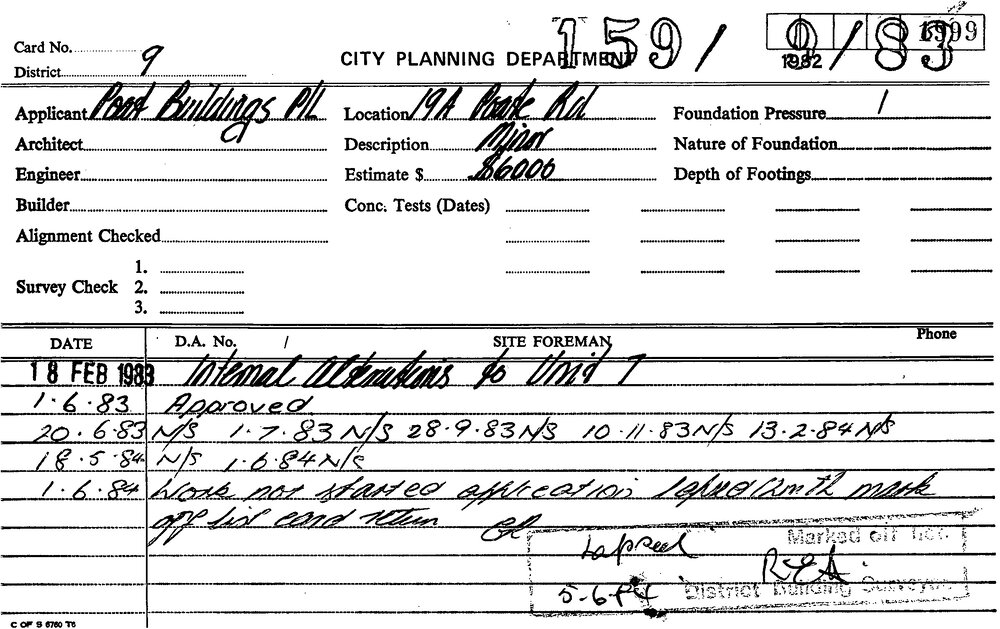 159/ 9/83 1999
1982
Card No. 9
District
CITY PLANNING DEPARTMENT
Applicant Poat Buildings P/L Location 19A Poate Rd Foundation Pressure /
Architect Description Minor Nature of Foundation
Engineer Estimate $ $6000 Depth of Footings
Builder Conc. Tests (Dates)
Alignment Checked
1.
Survey Check 2.
3.
DATE D.A. No. / SITE FOREMAN Phone
18 FEB 1983 Internal Alterations to Unit 7
1.6.83 Approved
20.6.83 N/S 1.7.83 N/S 28.9.83 N/S 10.11.83 N/S 13.2.84 N/S
18.5.84 N/S 1.6.84 N/S
1.6.84 Work not started application lapsed 12mth mark
off list card return
Lapsed Marked off list.
5-6-84 District Building Surveyor
C OF S 6760 T6